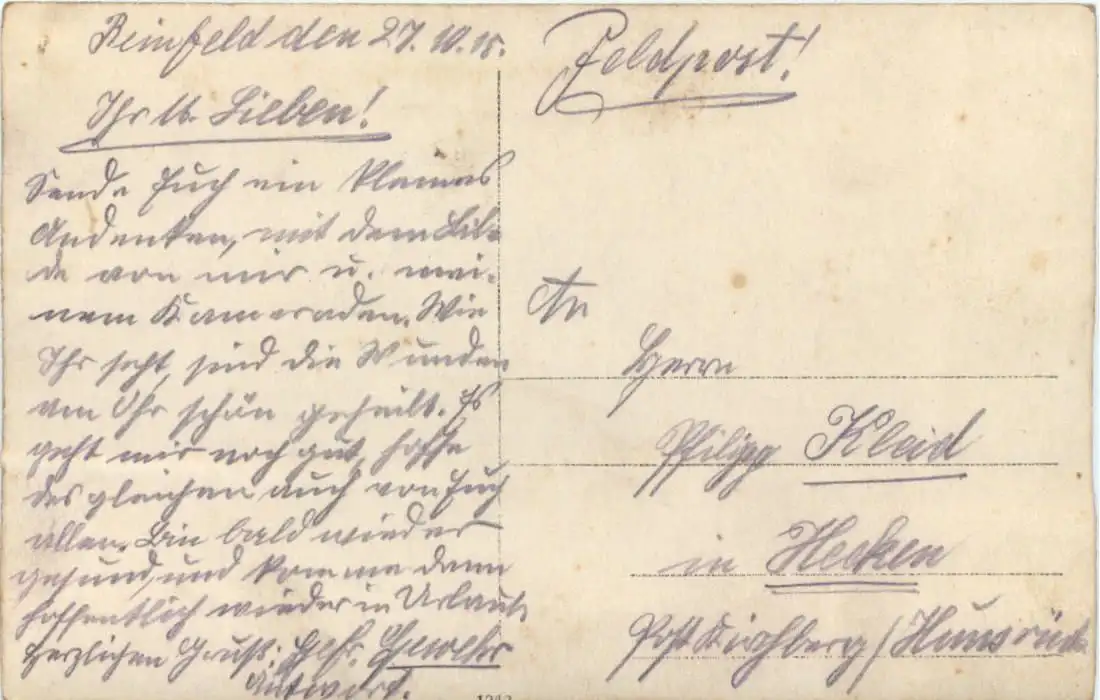 Reinfeld den 27.10.15.
Ihr lb. Lieben!
Sende Euch ein kleines
Andenken, mit dem Bil-
de von mir u. mei-
nem Kameraden. Wie
Ihr seht, sind die Wunden
am Ohr schön geheilt. Es
geht mir noch gut, hoffe
desgleichen auch von Euch
allen. Bin bald wieder
gesund, und komme dann
hoffentlich wieder in Urlaub.
Herzlichen Gruß:
Antwort.
Feldpost!
An
Herrn
Philipp Kleid
in Hecken
Post Kirchberg / Hunsrück